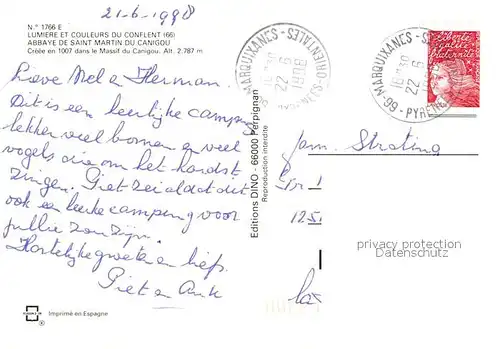 21-6-1998
N.° 1766 E
LUMIERE ET COULEURS DU CONFLENT (66)
ABBAYE DE SAINT MARTIN DU CANIGOU
Créée en 1007 dans le Massif du Canigou. Alt. 2.787 m
Lieve Mel en Herman.
Dit is een heerlijke camping
lekker veel bomen en veel
vogels die om het hardst
zingen. Piet zei al dat dit
ook een leuke camping voor
jullie zou zijn.
Hartelijke groeten en liefs
Piet en Ank
Imprimé en Espagne
Editions DINO - 66000 Perpignan
Reproduction interdite
66-MARQUIXANES - PYRENEES-ORIENTALES
22-6
1998
66-MARQUIXANES
22-6
PYRENE
liberté
égalité
fraternité
fam. Strating
125
privacy protection
Datenschutz